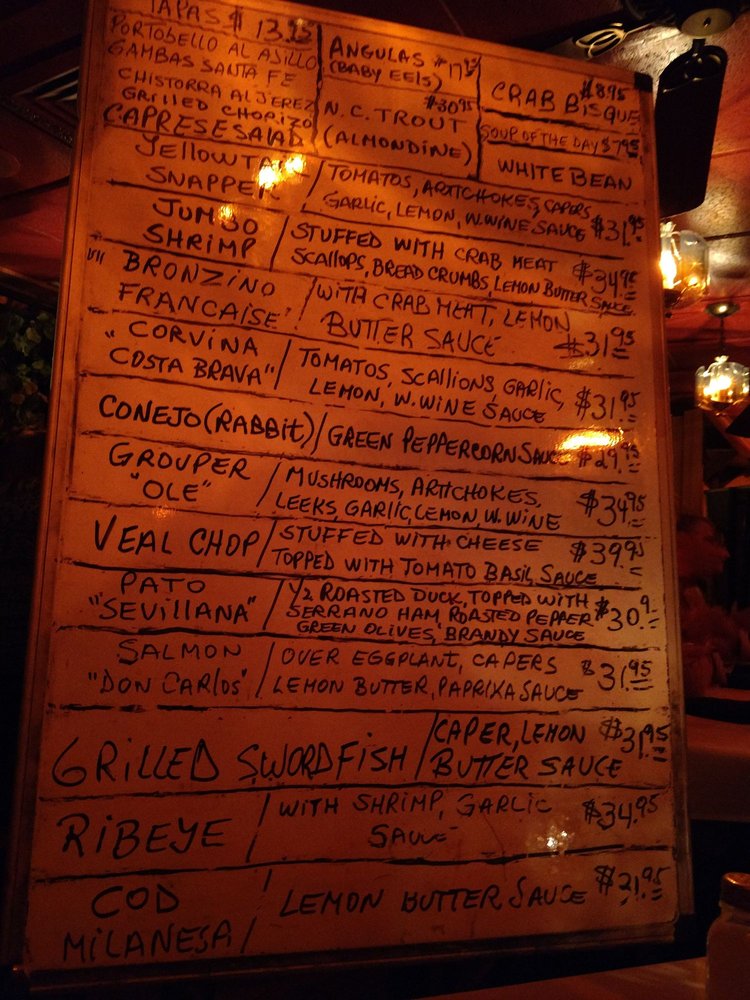 TAPAS $ 13.95
PORTOBELLO AL AJILLO
GAMBAS SANTA FE
CHISTORRA AL JEREZ
GRILLED CHORIZO
CAPRESE SALAD
ANGULAS $17.95
(BABY EELS)
$30.95
N.C. TROUT
(ALMONDINE)
$8.95
CRAB BISQUE
SOUP OF THE DAY $7.95
WHITE BEAN
YELLOWTAIL
SNAPPER
/ TOMATOS, ARTICHOKES, CAPERS
GARLIC, LEMON, W. WINE SAUCE $31.95
JUMBO
SHRIMP
/ STUFFED WITH CRAB MEAT
SCALLOPS, BREAD CRUMBS, LEMON BUTTER SAUCE $34.95
BRONZINO
FRANCAISE
/ WITH CRAB MEAT, LEMON
BUTTER SAUCE $31.95
"CORVINA
COSTA BRAVA"
/ TOMATOS, SCALLIONS, GARLIC,
LEMON, W. WINE SAUCE $31.95
CONEJO (RABBIT) / GREEN PEPPERCORN SAUCE $29.95
GROUPER
"OLE"
/ MUSHROOMS, ARTICHOKES,
LEEKS, GARLIC, LEMON W. WINE $34.95
VEAL CHOP / STUFFED WITH CHEESE $39.95
TOPPED WITH TOMATO BASIL SAUCE
PATO
"SEVILLANA"
/ 1/2 ROASTED DUCK, TOPPED WITH
SERRANO HAM, ROASTED PEPPER $30.9
GREEN OLIVES, BRANDY SAUCE
SALMON
"DON CARLOS"
/ OVER EGGPLANT, CAPERS
LEMON BUTTER, PAPRIKA SAUCE $31.95
GRILLED SWORDFISH / CAPER, LEMON $31.95
BUTTER SAUCE
RIBEYE / WITH SHRIMP, GARLIC $34.95
SAUCE
COD
MILANESA
/ LEMON BUTTER SAUCE $21.95